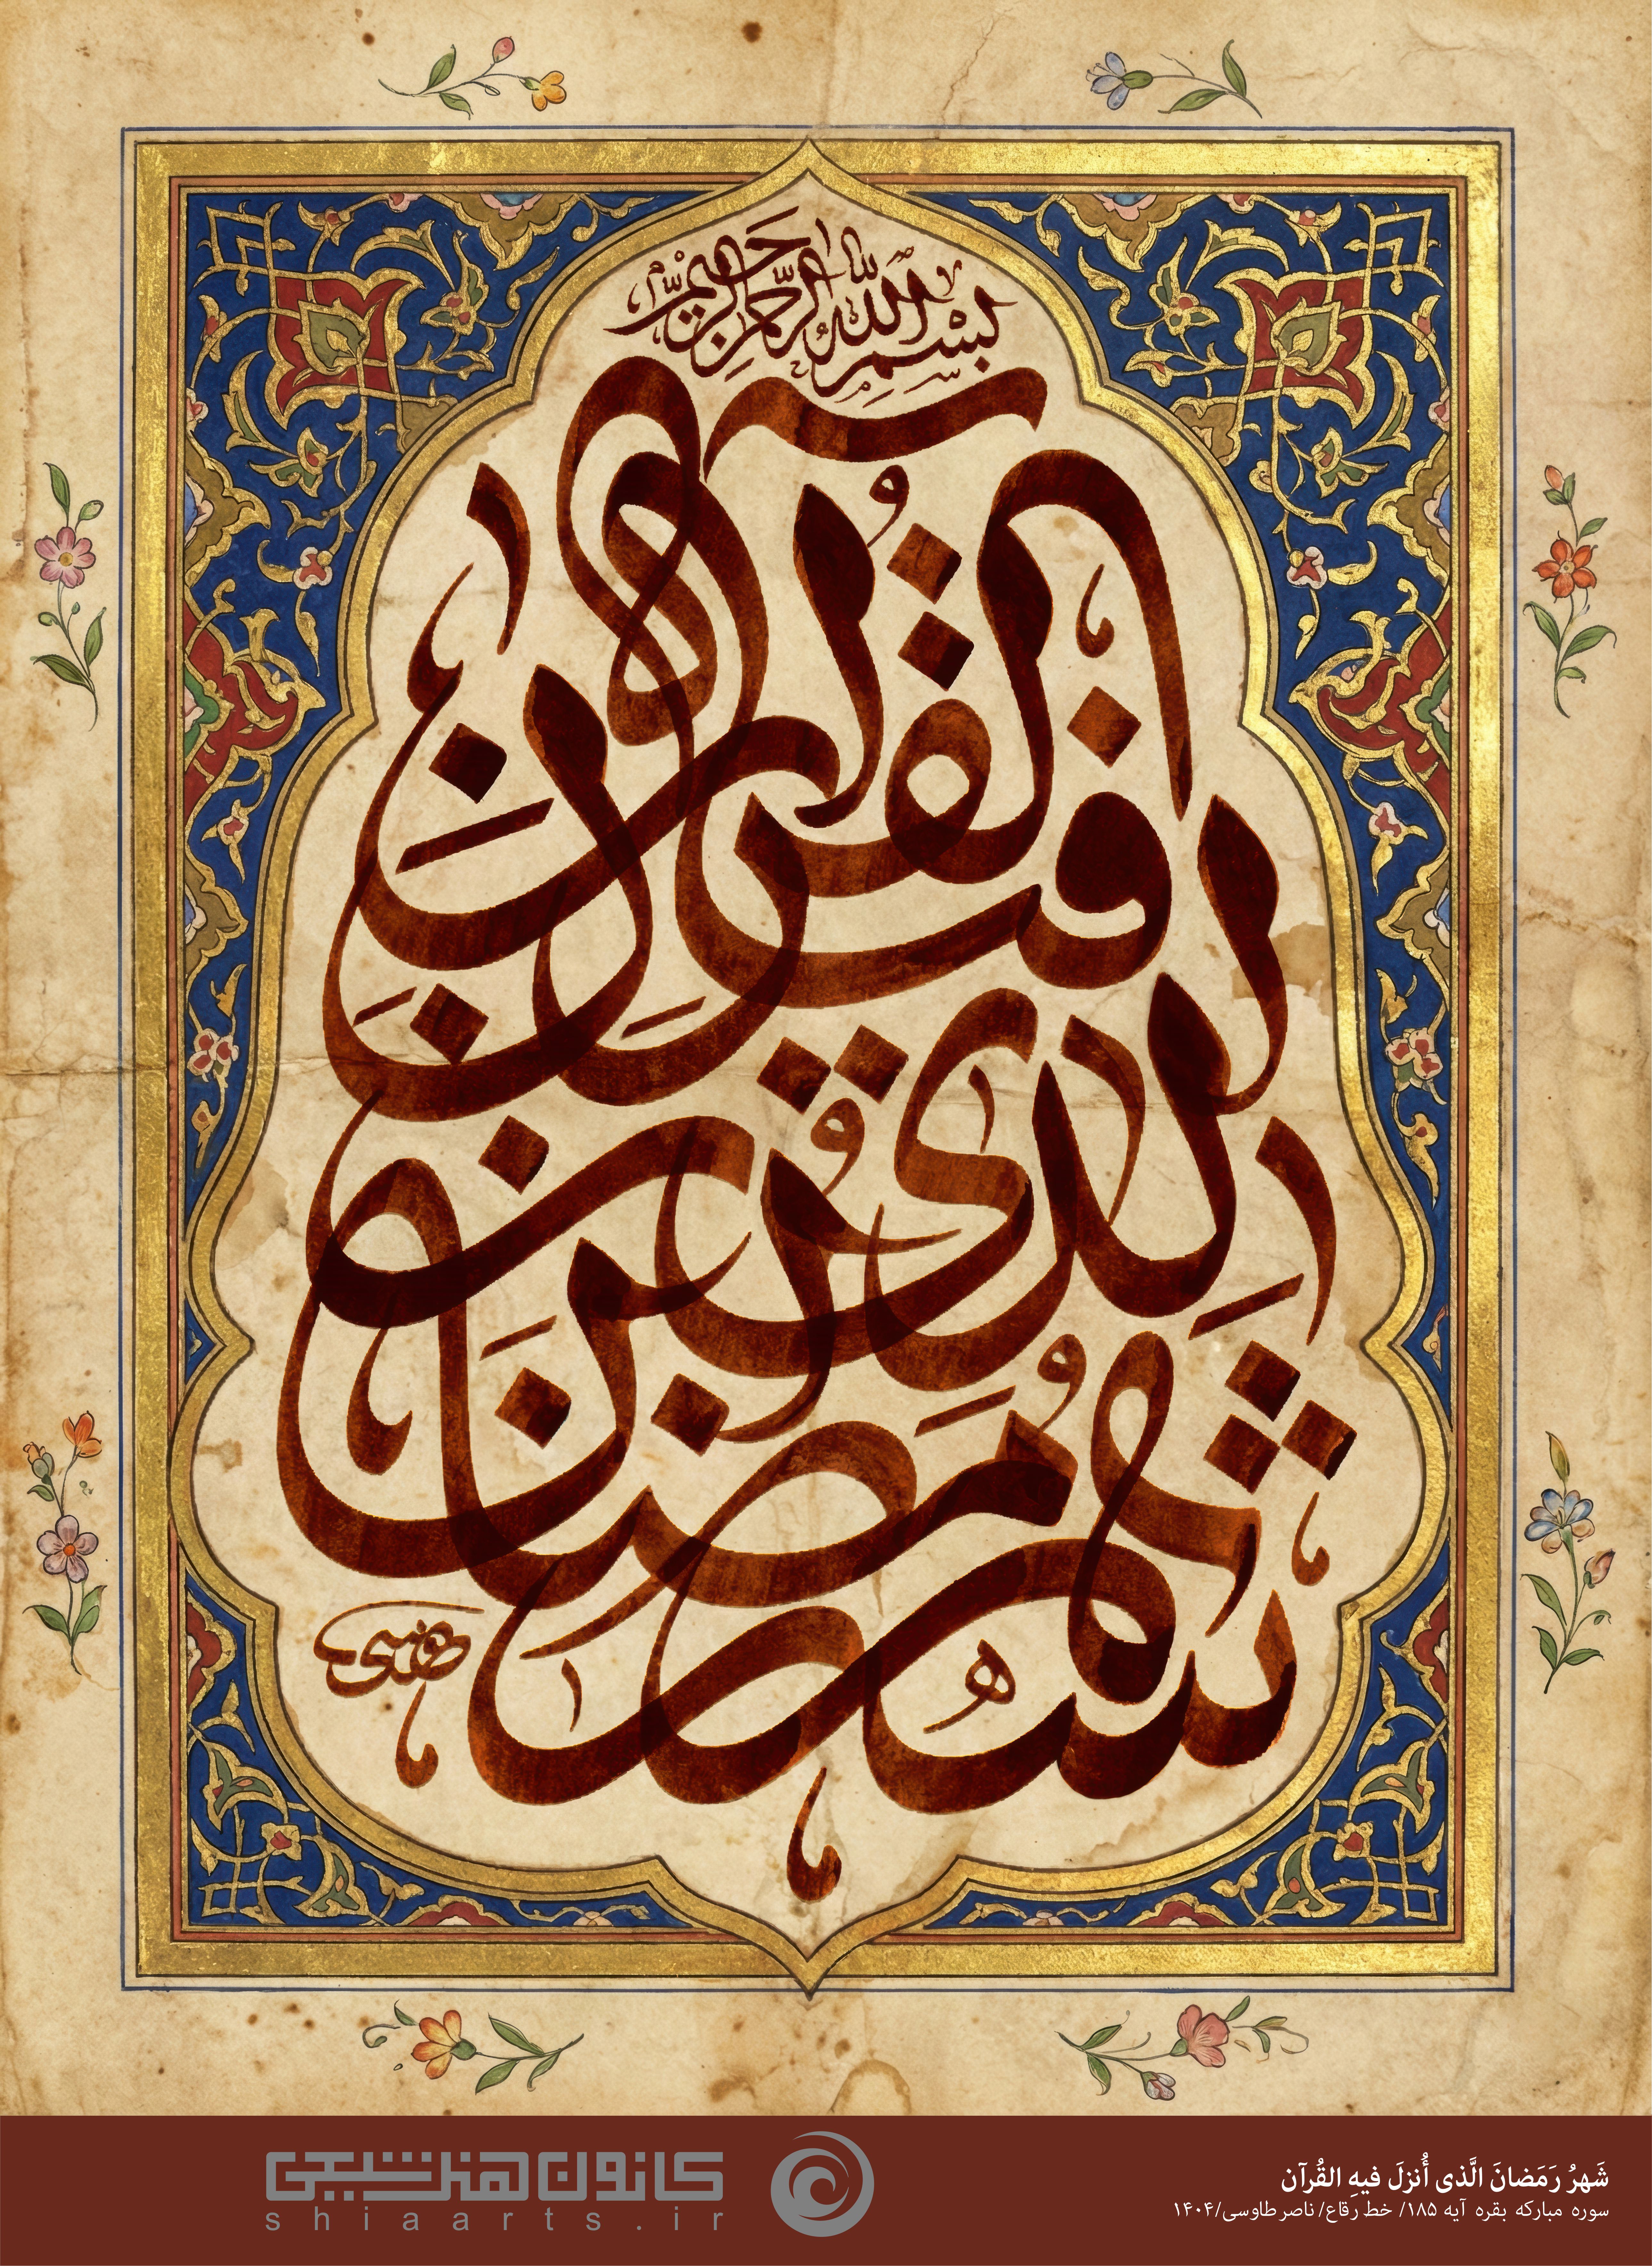 بِسْمِ اللهِ الرَّحْمنِ الرَّحیمِ
شهر رمضان
الذی انزل
فیه القرآن
کانون هنر شیعی
shiaarts.ir
شَهرُ رَمَضانَ الَّذی أُنزلَ فیهِ القُرآن
سوره مبارکه بقره آیه ۱۸۵/ خط رقاع/ ناصر طاوسی/۱۴۰۴